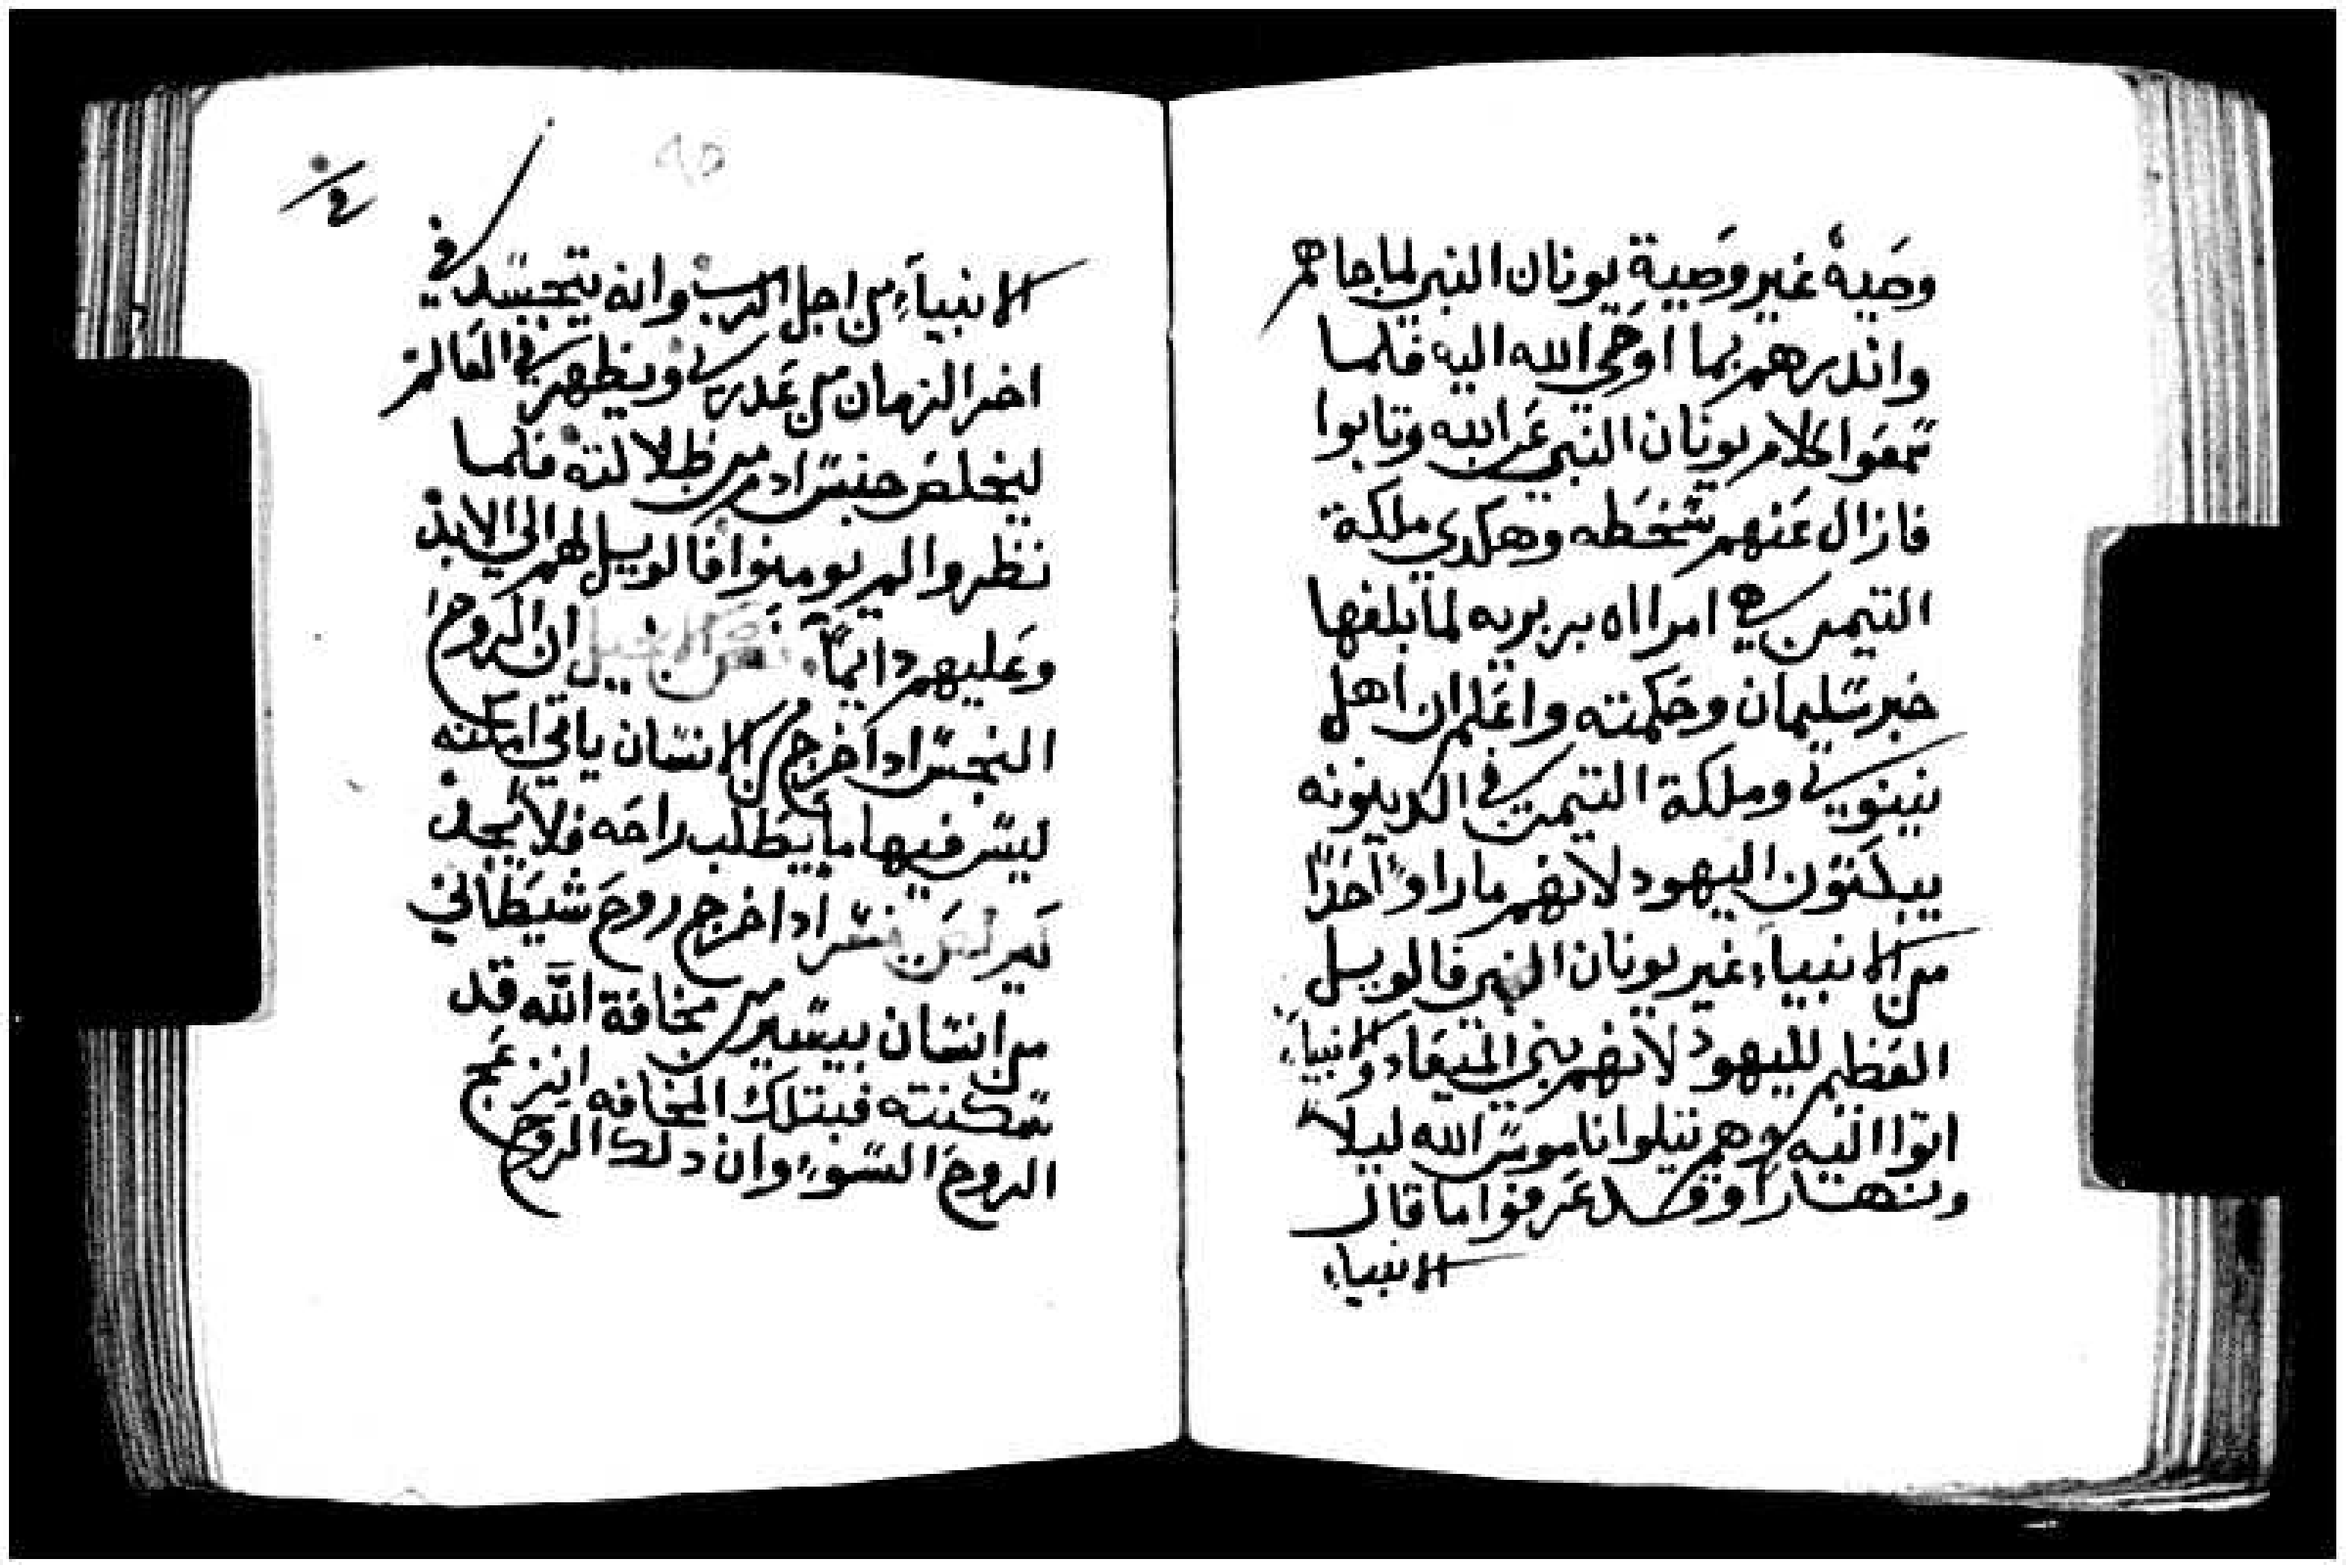 وصية غير وصية يونان النبي لما جاهم
واندرهم بما اوحي الله اليه فلما
سمعوا كلام يونان النبي عبد الله وتابوا
فازال عنهم سخطه وهكدي ملكة
التيمن هي امراه بربريه لما بلغها
خبر سليمان وحكمته واعلم ان اهل
نينوي وملكة التيمن في الدينونه
يبكتون اليهود لانهم ما راوا احدا
من الانبياء غير يونان النبي فالويل
العظيم لليهود لانهم بني الميعاد والانبياء
اتوا اليه وهم يتلوا ناموس الله ليلا
ونهارا وقد عرفوا ما قال
الانبياء
الانبياء من اجل الرب وانه يتجسد في
اخر الزمان من عدري ويظهر في العالم
ليخلص جنس ادم من ظلالته فلما
نظروا لم يومنوا فالويل لهم الي الابد
وعليهم دايما نص الانجيل ان الروح
النجس ادا خرج من الانسان ياتي امكنه
ليس فيها ما يطلب راحه فلا يجد
يفسر ادا خرج روح شيطاني
من انسان بيسير من مخافة الله قد
سكنته فبتلك المخافه انزعج
الروح السوء وان دلك الروح